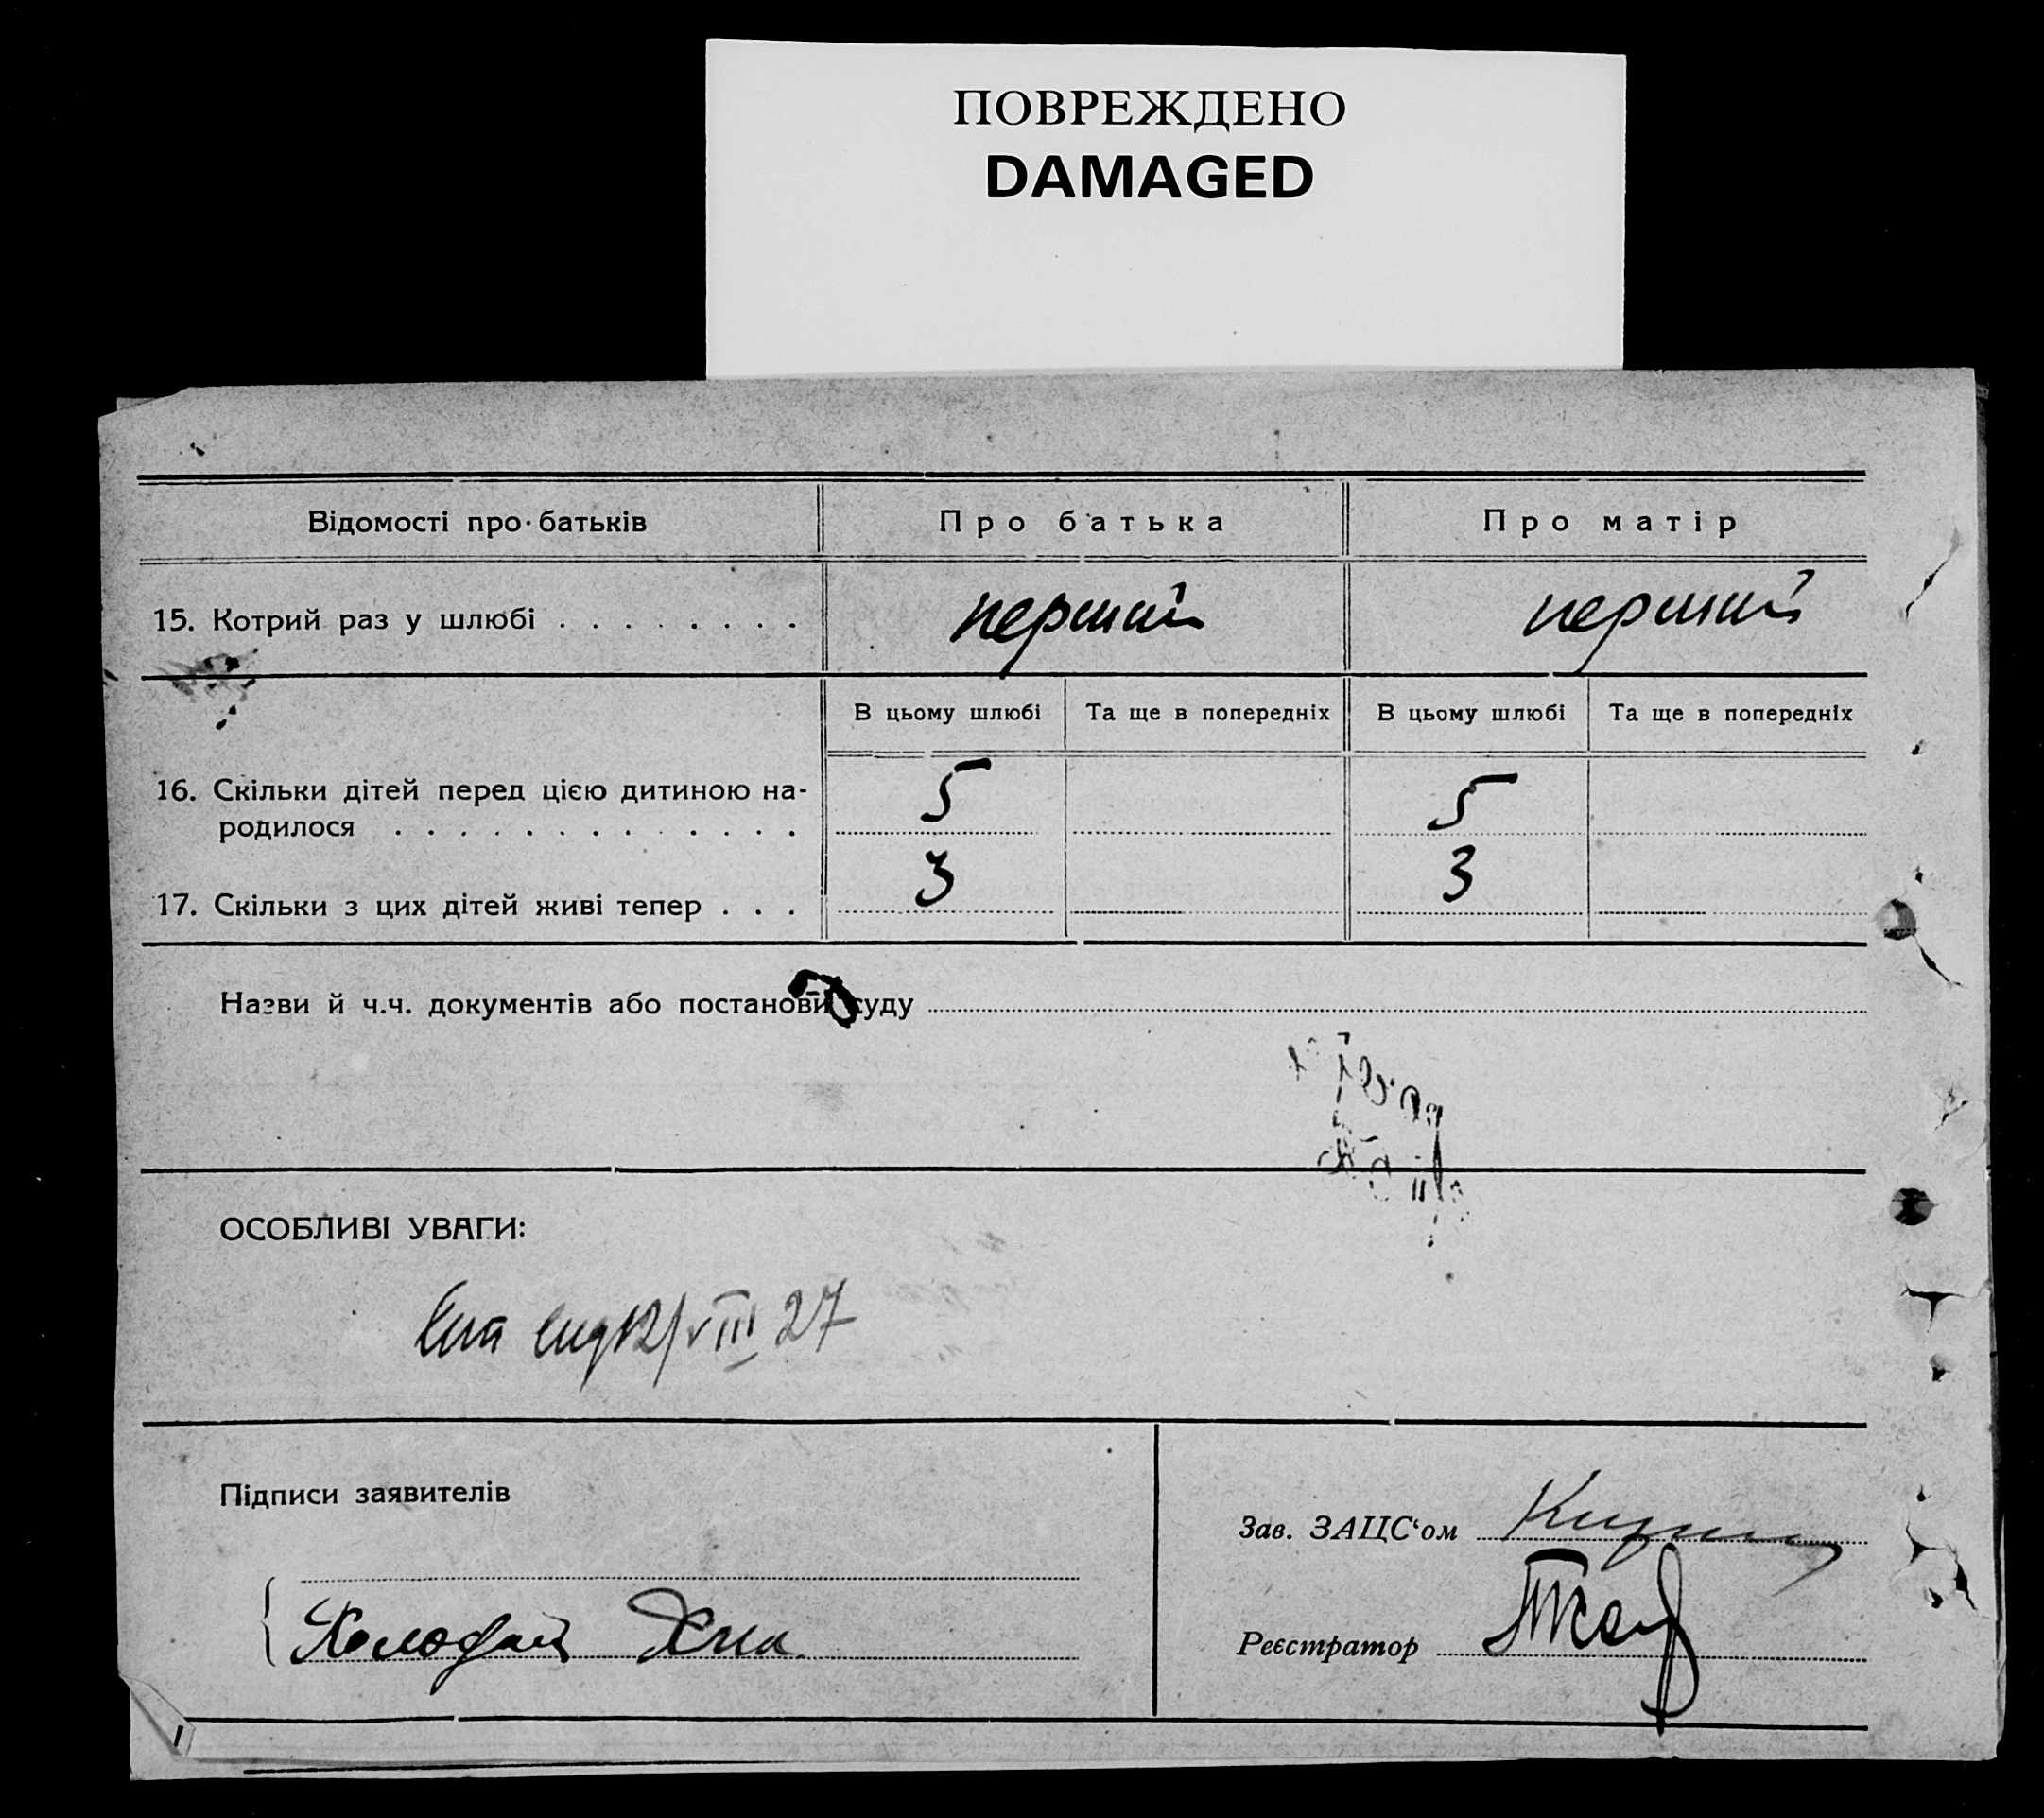 ПОВРЕЖДЕНО
DAMAGED
Відомості про батьків
Про батька
Про матір
15. Котрий раз у шлюбі . . . . . . . .
перший
перший
В цьому шлюбі
Та ще в попередніх
В цьому шлюбі
Та ще в попередніх
16. Скільки дітей перед цією дитиною на-
родилося . . . . . . . . . . . . .
5
5
17. Скільки з цих дітей живі тепер . . .
3
3
Назви й ч.ч. документів або постанови суду
ОСОБЛИВІ УВАГИ:
12/VIII 27
Підписи заявителів
Зав. ЗАЦС‘ом
Холодай
Реєстратор